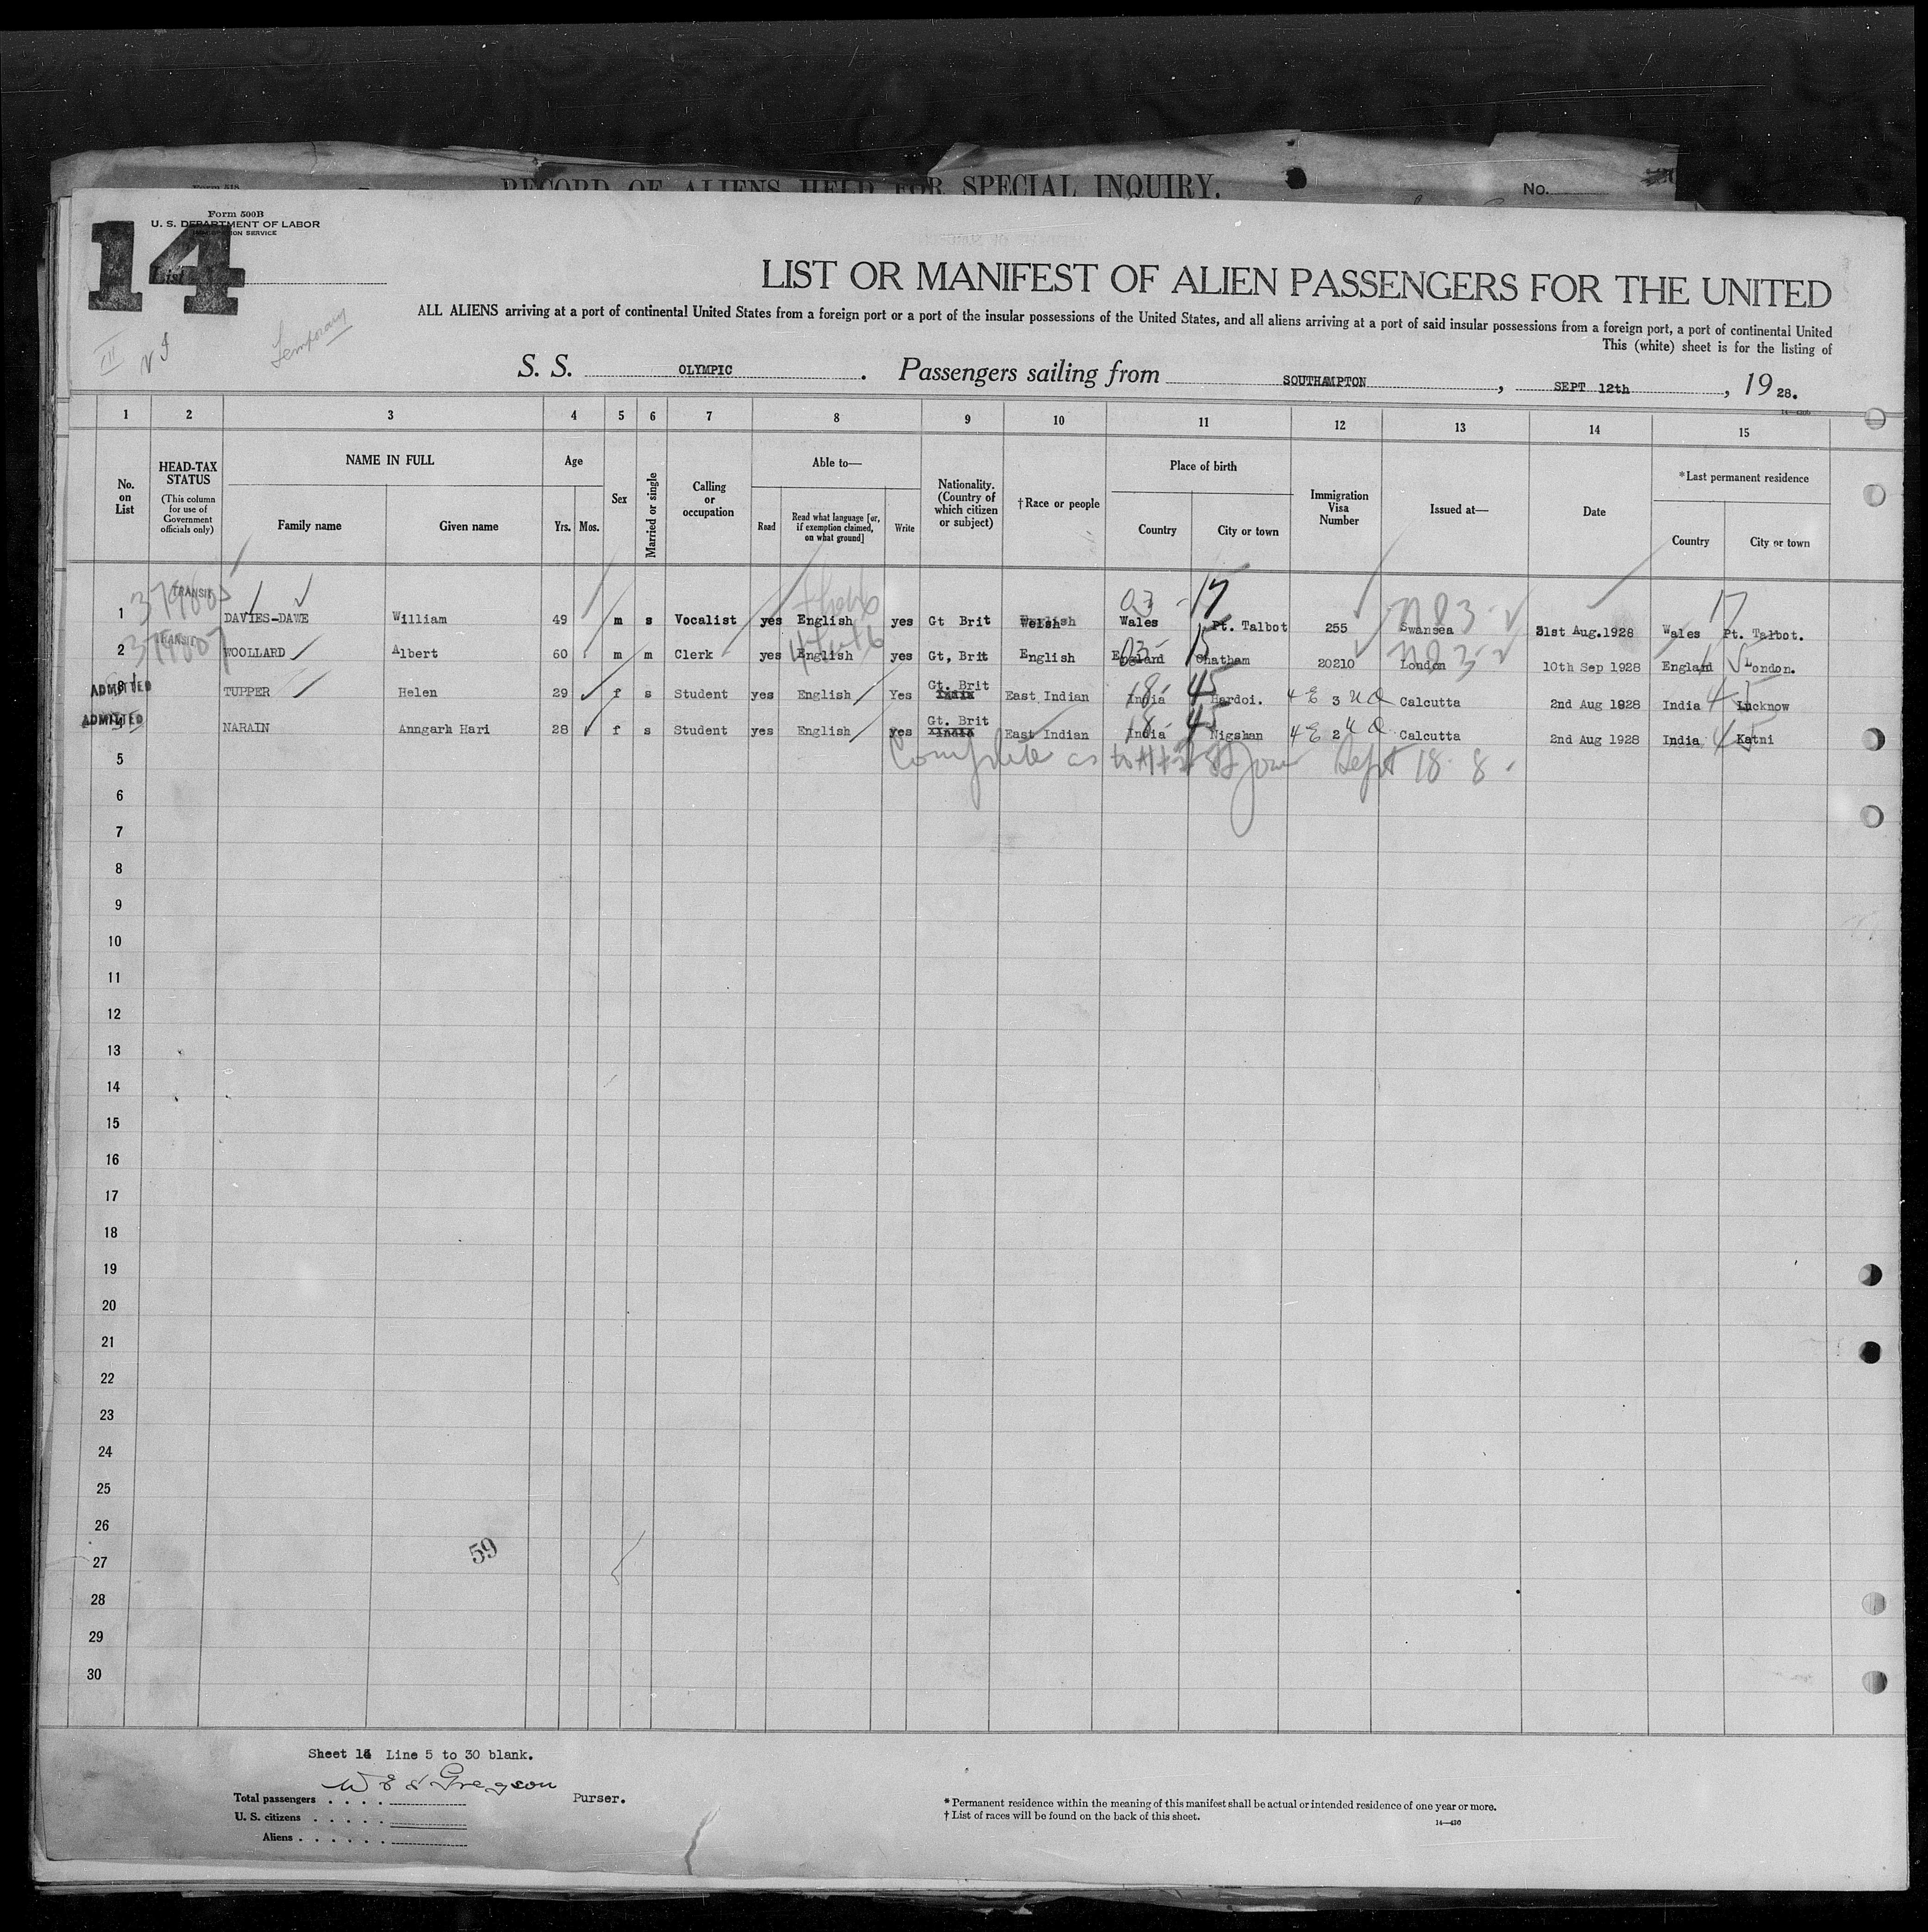 RECORD OF ALIENS HELD FOR SPECIAL INQUIRY.
No.
Form 500B
U. S. DEPARTMENT OF LABOR
14
List
Temporary
LIST OR MANIFEST OF ALIEN PASSENGERS FOR THE UNITED
ALL ALIENS arriving at a port of continental United States from a foreign port or a port of the insular possessions of the United States, and all aliens arriving at a port of said insular possessions from a foreign port, a port of continental United
This (white) sheet is for the listing of
S. S. OLYMPIC. Passengers sailing from SOUTHAMPTON, SEPT 12th, 19 28.
1 2 3 4 5 6 7 8 9 10 11 12 13 14 15
No. on List
HEAD-TAX STATUS (This column for use of Government officials only)
NAME IN FULL
Family name Given name
Age
Yrs. Mos.
Sex
Married or single
Calling or occupation
Able to—
Read Read what language [or, if exemption claimed, on what ground] Write
Nationality. (Country of which citizen or subject)
†Race or people
Place of birth
Country City or town
Immigration Visa Number
Issued at—
Date
*Last permanent residence
Country City or town
1 TRANSIT DAVIES-DAWE William 49 m s Vocalist yes English yes Gt Brit Welsh Wales Pt. Talbot 255 Swansea 31st Aug.1928 Wales Pt. Talbot.
03 17 17
2 TRANSIT WOOLLARD Albert 60 m m Clerk yes English yes Gt, Brit English England Chatham 20210 London 10th Sep 1928 England London.
03 15
ADMITTED TUPPER Helen 29 f s Student yes English Yes Gt. Brit India East Indian India Hardoi. 3 Calcutta 2nd Aug 1928 India Lucknow
18 45
ADMITTED NARAIN Anngarh Hari 28 f s Student yes English yes Gt. Brit India East Indian India Nigshan 2 Calcutta 2nd Aug 1928 India Katni
18 45 45
Complete as to Sept 18 8.
5
6
7
8
9
10
11
12
13
14
15
16
17
18
19
20
21
22
23
24
25
26
27
28
29
30
59
Sheet 14 Line 5 to 30 blank.
Gregson
Purser.
Total passengers
U. S. citizens
Aliens
* Permanent residence within the meaning of this manifest shall be actual or intended residence of one year or more.
† List of races will be found on the back of this sheet.
14—430